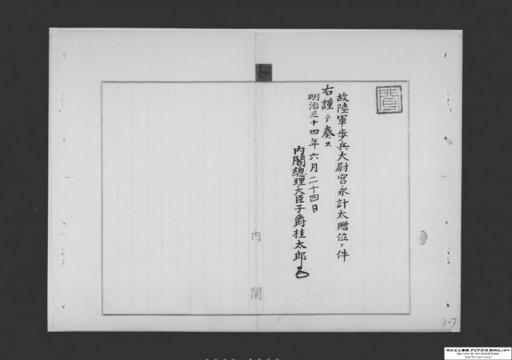 故陸軍歩兵大尉宮永計太贈位ノ件
右謹テ奏ス
明治三十四年六月二十四日
内閣總理大臣子爵桂太郎
内閣